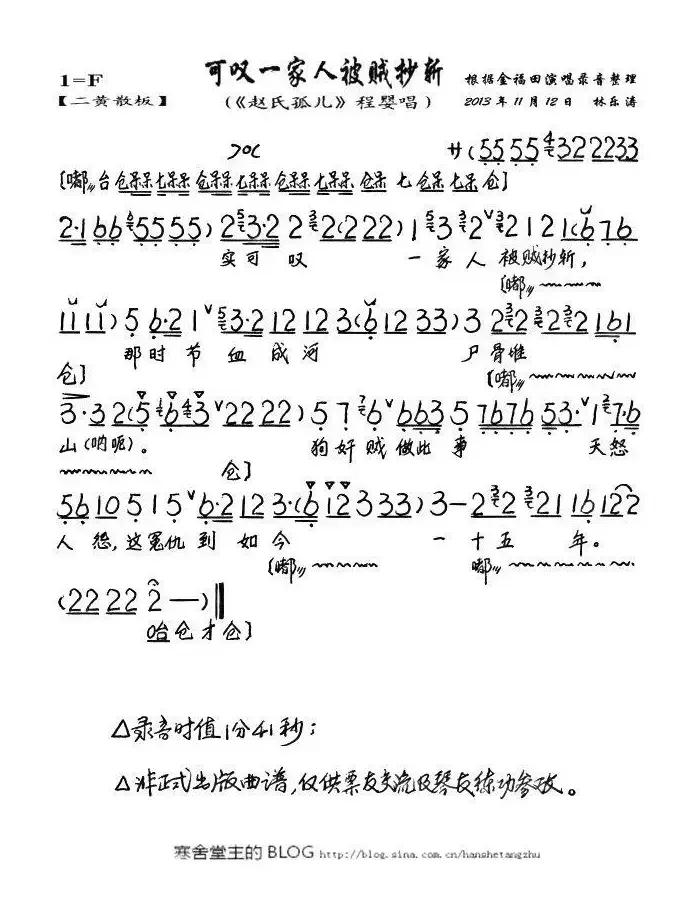 可叹一家人被贼抄斩
1=F
【二黄散板】
(《赵氏孤儿》程婴唱)
根据金福田演唱录音整理
2013年11月12日 林乐涛
サ(55 55 4 32 2233
〔嘟 台仓呆呆七呆呆 仓呆呆七呆呆仓呆呆七呆呆 仓呆 七 仓呆七呆仓〕
2·1 66 5555) 2 3·2 2 2(222) 1 3 2 2 1 2 1(676
实可叹 一家人被贼抄斩,
〔嘟
11 11) 5 6·2 1 3·2 12 12 3(6 12 33) 3 2 2 2 161
那时节血成河 尸骨堆
仓〕 〔嘟
3·3 2(5 6 3 22 22) 5 7 6 663 5 7676 53· 1 7·6
山(呐呃)。 狗奸贼做此事 天怒
仓〕
56 10 5 1 5 6·2 12 3·(6 12 3 33) 3— 2 2 21 16 122
人怨,这冤仇到如今 一十五年。
〔嘟 嘟
(22 22 2 —)
哈仓才仓〕
△录音时值1分41秒;
△非正式出版曲谱,仅供票友交流及琴友练功参改。
寒舍堂主的 BLOG http://blog.sina.com.cn/hanshetangzhu